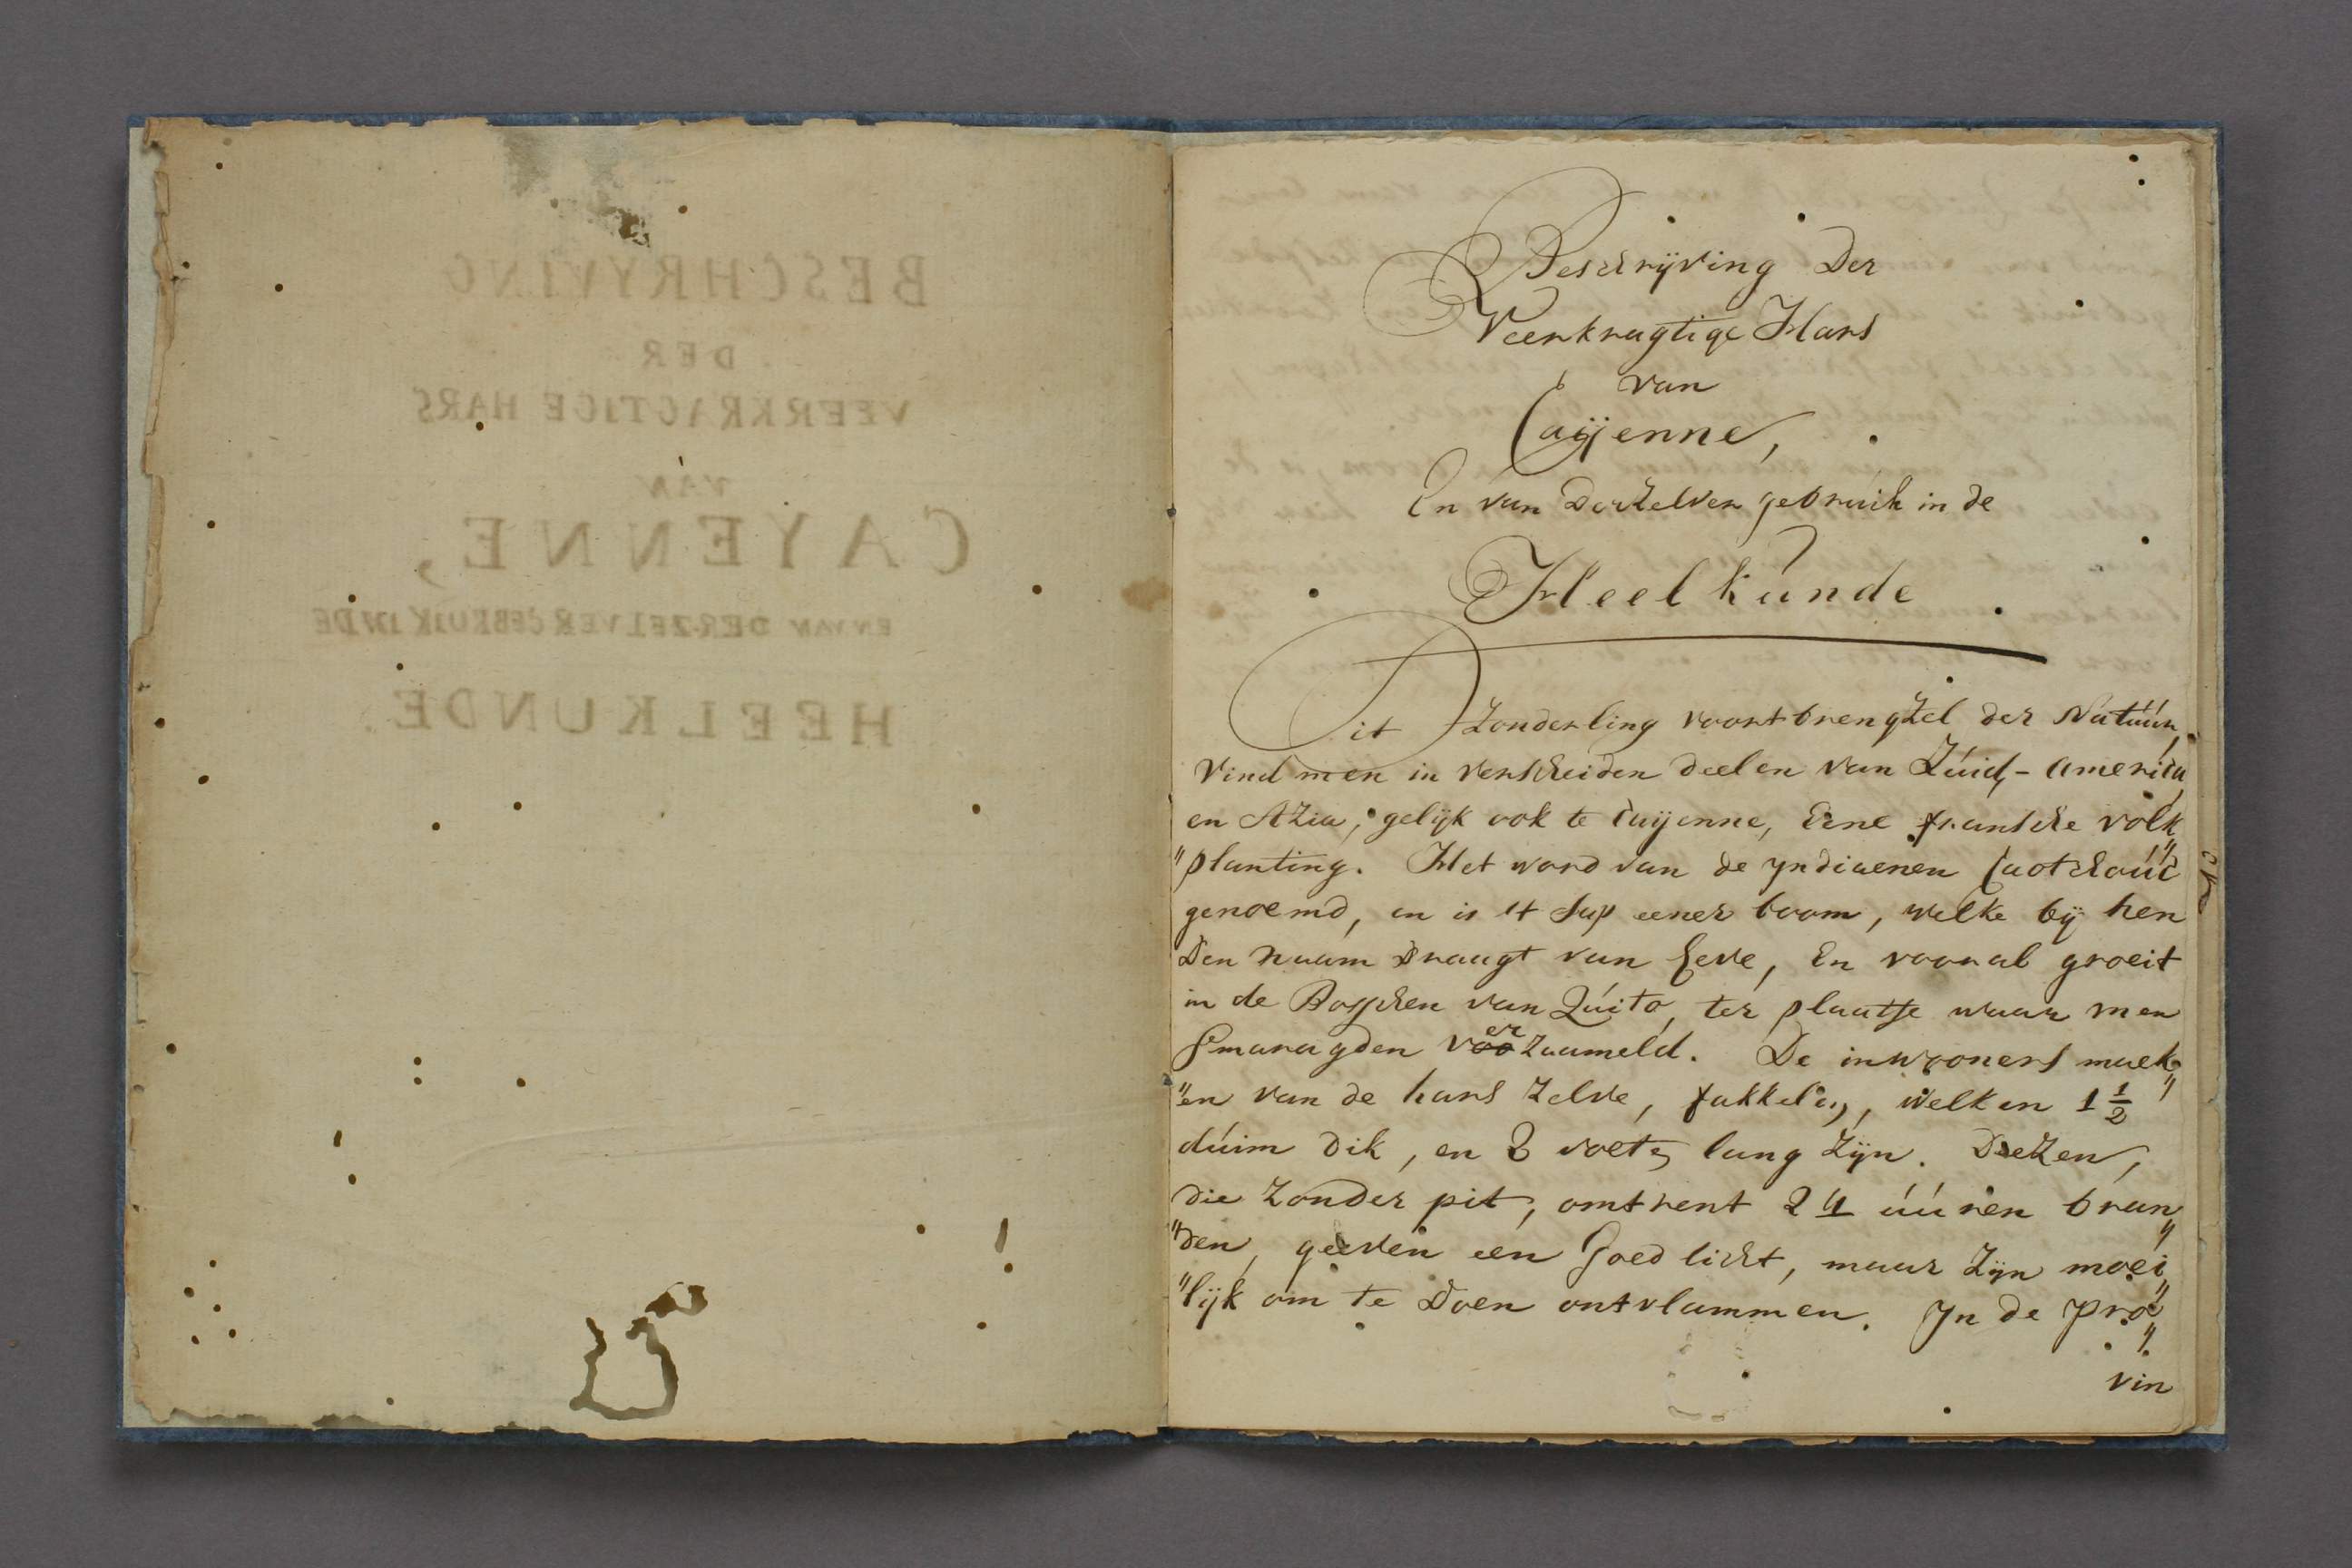 BESCHRYVING
DER
VEERKRAGTIGE HARS
VAN
CAYENNE,
EN VAN DERZELVER GEBRUIK IN DE
HEELKUNDE.
Beschrijving der
Veerkragtige Hars
van
Caÿenne,
En van Derzelver gebruik in de
Heelkunde
Dit Zonderling voortbrengzel der Natuur,
Vind men in verscheiden deelen van Zuid,-america
en Azia, gelijk ook te Caijenne, Eene fransche volk„
„planting. Het word van de yndiaenen Caotchouc
genoemd, en is 't Sap eener boom, welke bÿ hen
Den naam Draagt van heve, En vooral groeit
in de Bosschen van Quito, ter plaatse waar men
Smaragden verzaameld. De inwooners maek„
„en van de hars zelve, fakkelen, welken 1 1/2
duim dik, en 2 voeten lang zijn. Deezen,
die zonder pit, omtrent 24 uuren bran„
„den, geeven een Goed licht, maar zijn moei„
„lijk om te Doen ontvlammen. In de pro„
vin